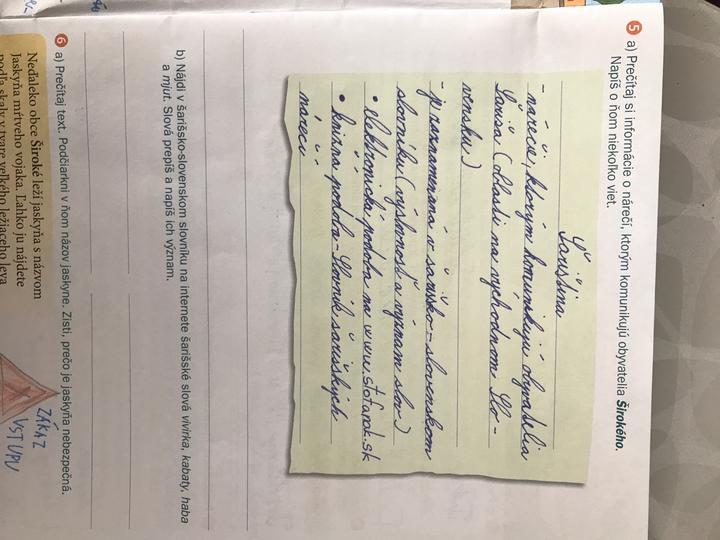 5 a) Prečítaj si informácie o nárečí, ktorým komunikujú obyvatelia Širokého.
Napíš o ňom niekoľko viet.
Šariština
- nárečie, ktorým komunikujú obyvatelia
Šariša (oblasti na východnom Slo-
vensku)
- zaznamenaná v šarišsko-slovenskom
slovníku (výslovnosť a význam slov)
• elektronická podoba na www.stofarok.sk
• knižná podoba - Slovník šarišských
nárečí
b) Nájdi v šarišsko-slovenskom slovníku na internete šarišské slová vivirka, kabaty, haba
a mjut. Slová prepíš a napíš ich význam.
6 a) Prečítaj text. Podčiarkni v ňom názov jaskyne. Zisti, prečo je jaskyňa nebezpečná.
Neďaleko obce Široké leží jaskyňa s názvom
Jaskyňa mŕtveho vojaka. Ľahko ju nájdete
podľa skaly v tvare veľkého ležiaceho leva
ZÁKAZ
VSTUPU